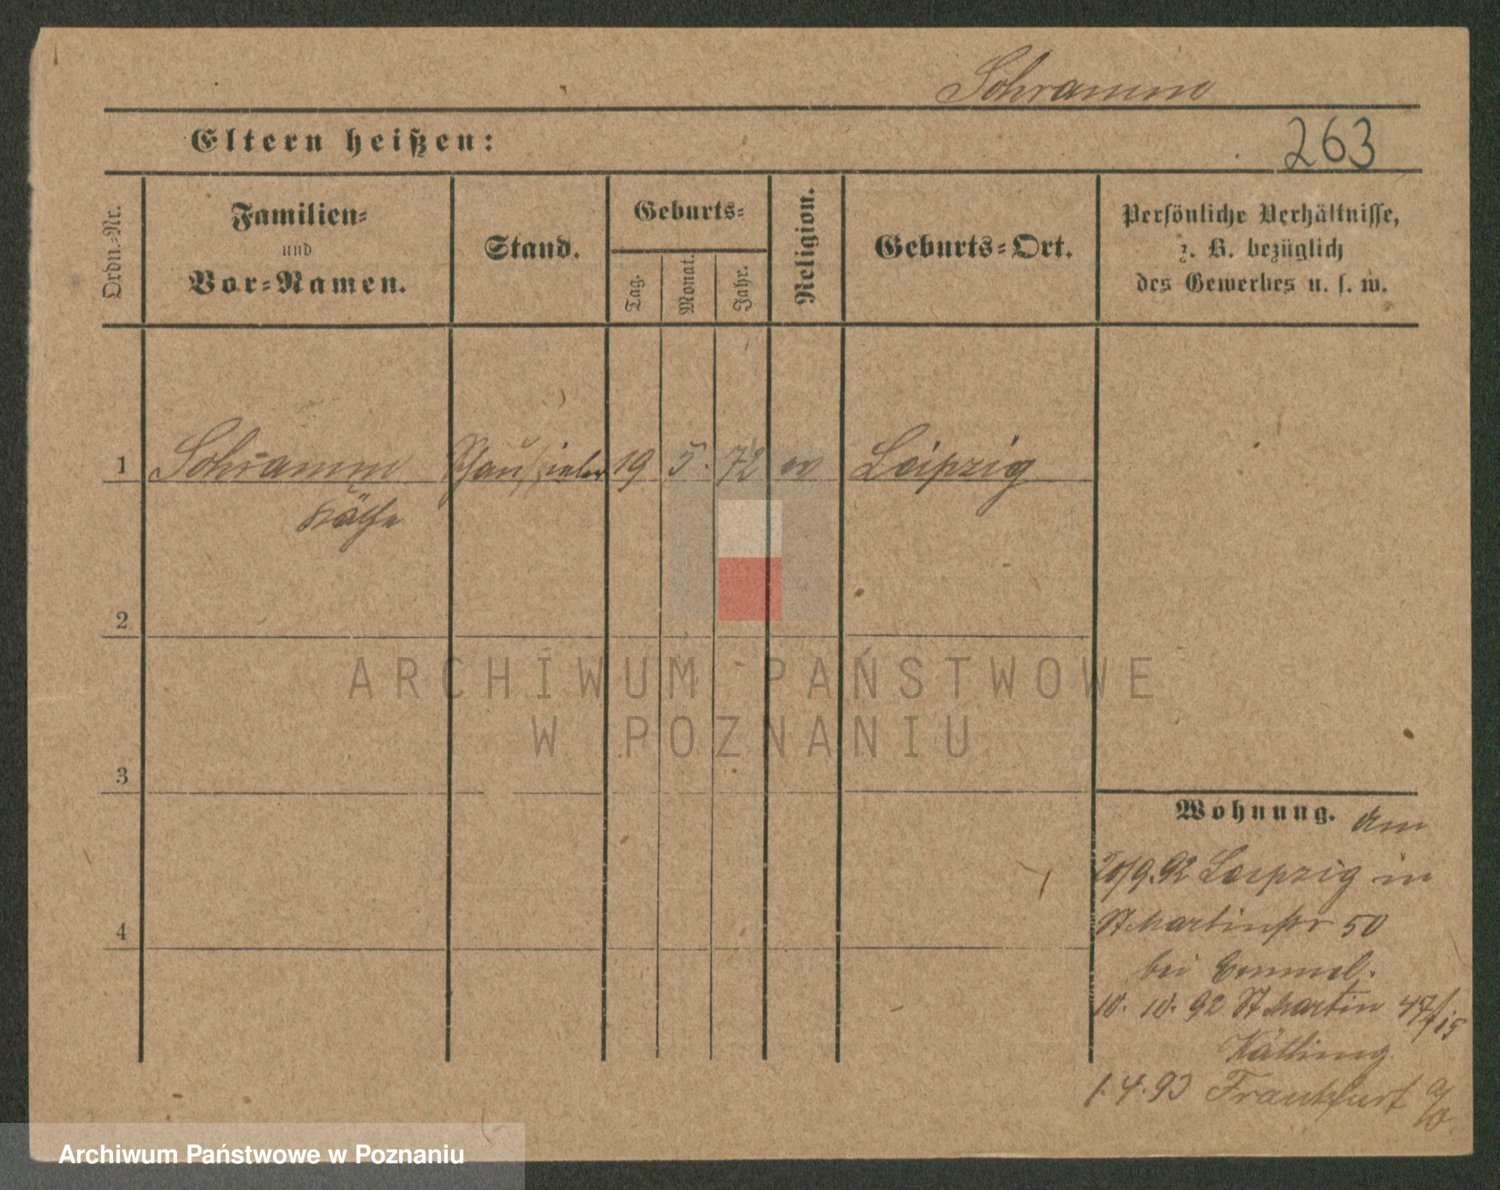 Schramm
Eltern heißen:
263
Ordn.-Nr.
Familien-
und
Vor-Namen.
Stand.
Geburts-
Tag.
Monat.
Jahr.
Religion.
Geburts-Ort.
Persönliche Verhältnisse,
z. B. bezüglich
des Gewerbes u. s. w.
1 Schramm 19 5. 72 ev Leipzig
Käthe
2
3
4
Wohnung. am
20/9.92 Leipzig in
St Martinstr 50
bei
10. 10. 92 St Martin 47/
1.4.93 Frankfurt a/O.
ARCHIWUM PAŃSTWOWE
W POZNANIU
Archiwum Państwowe w Poznaniu